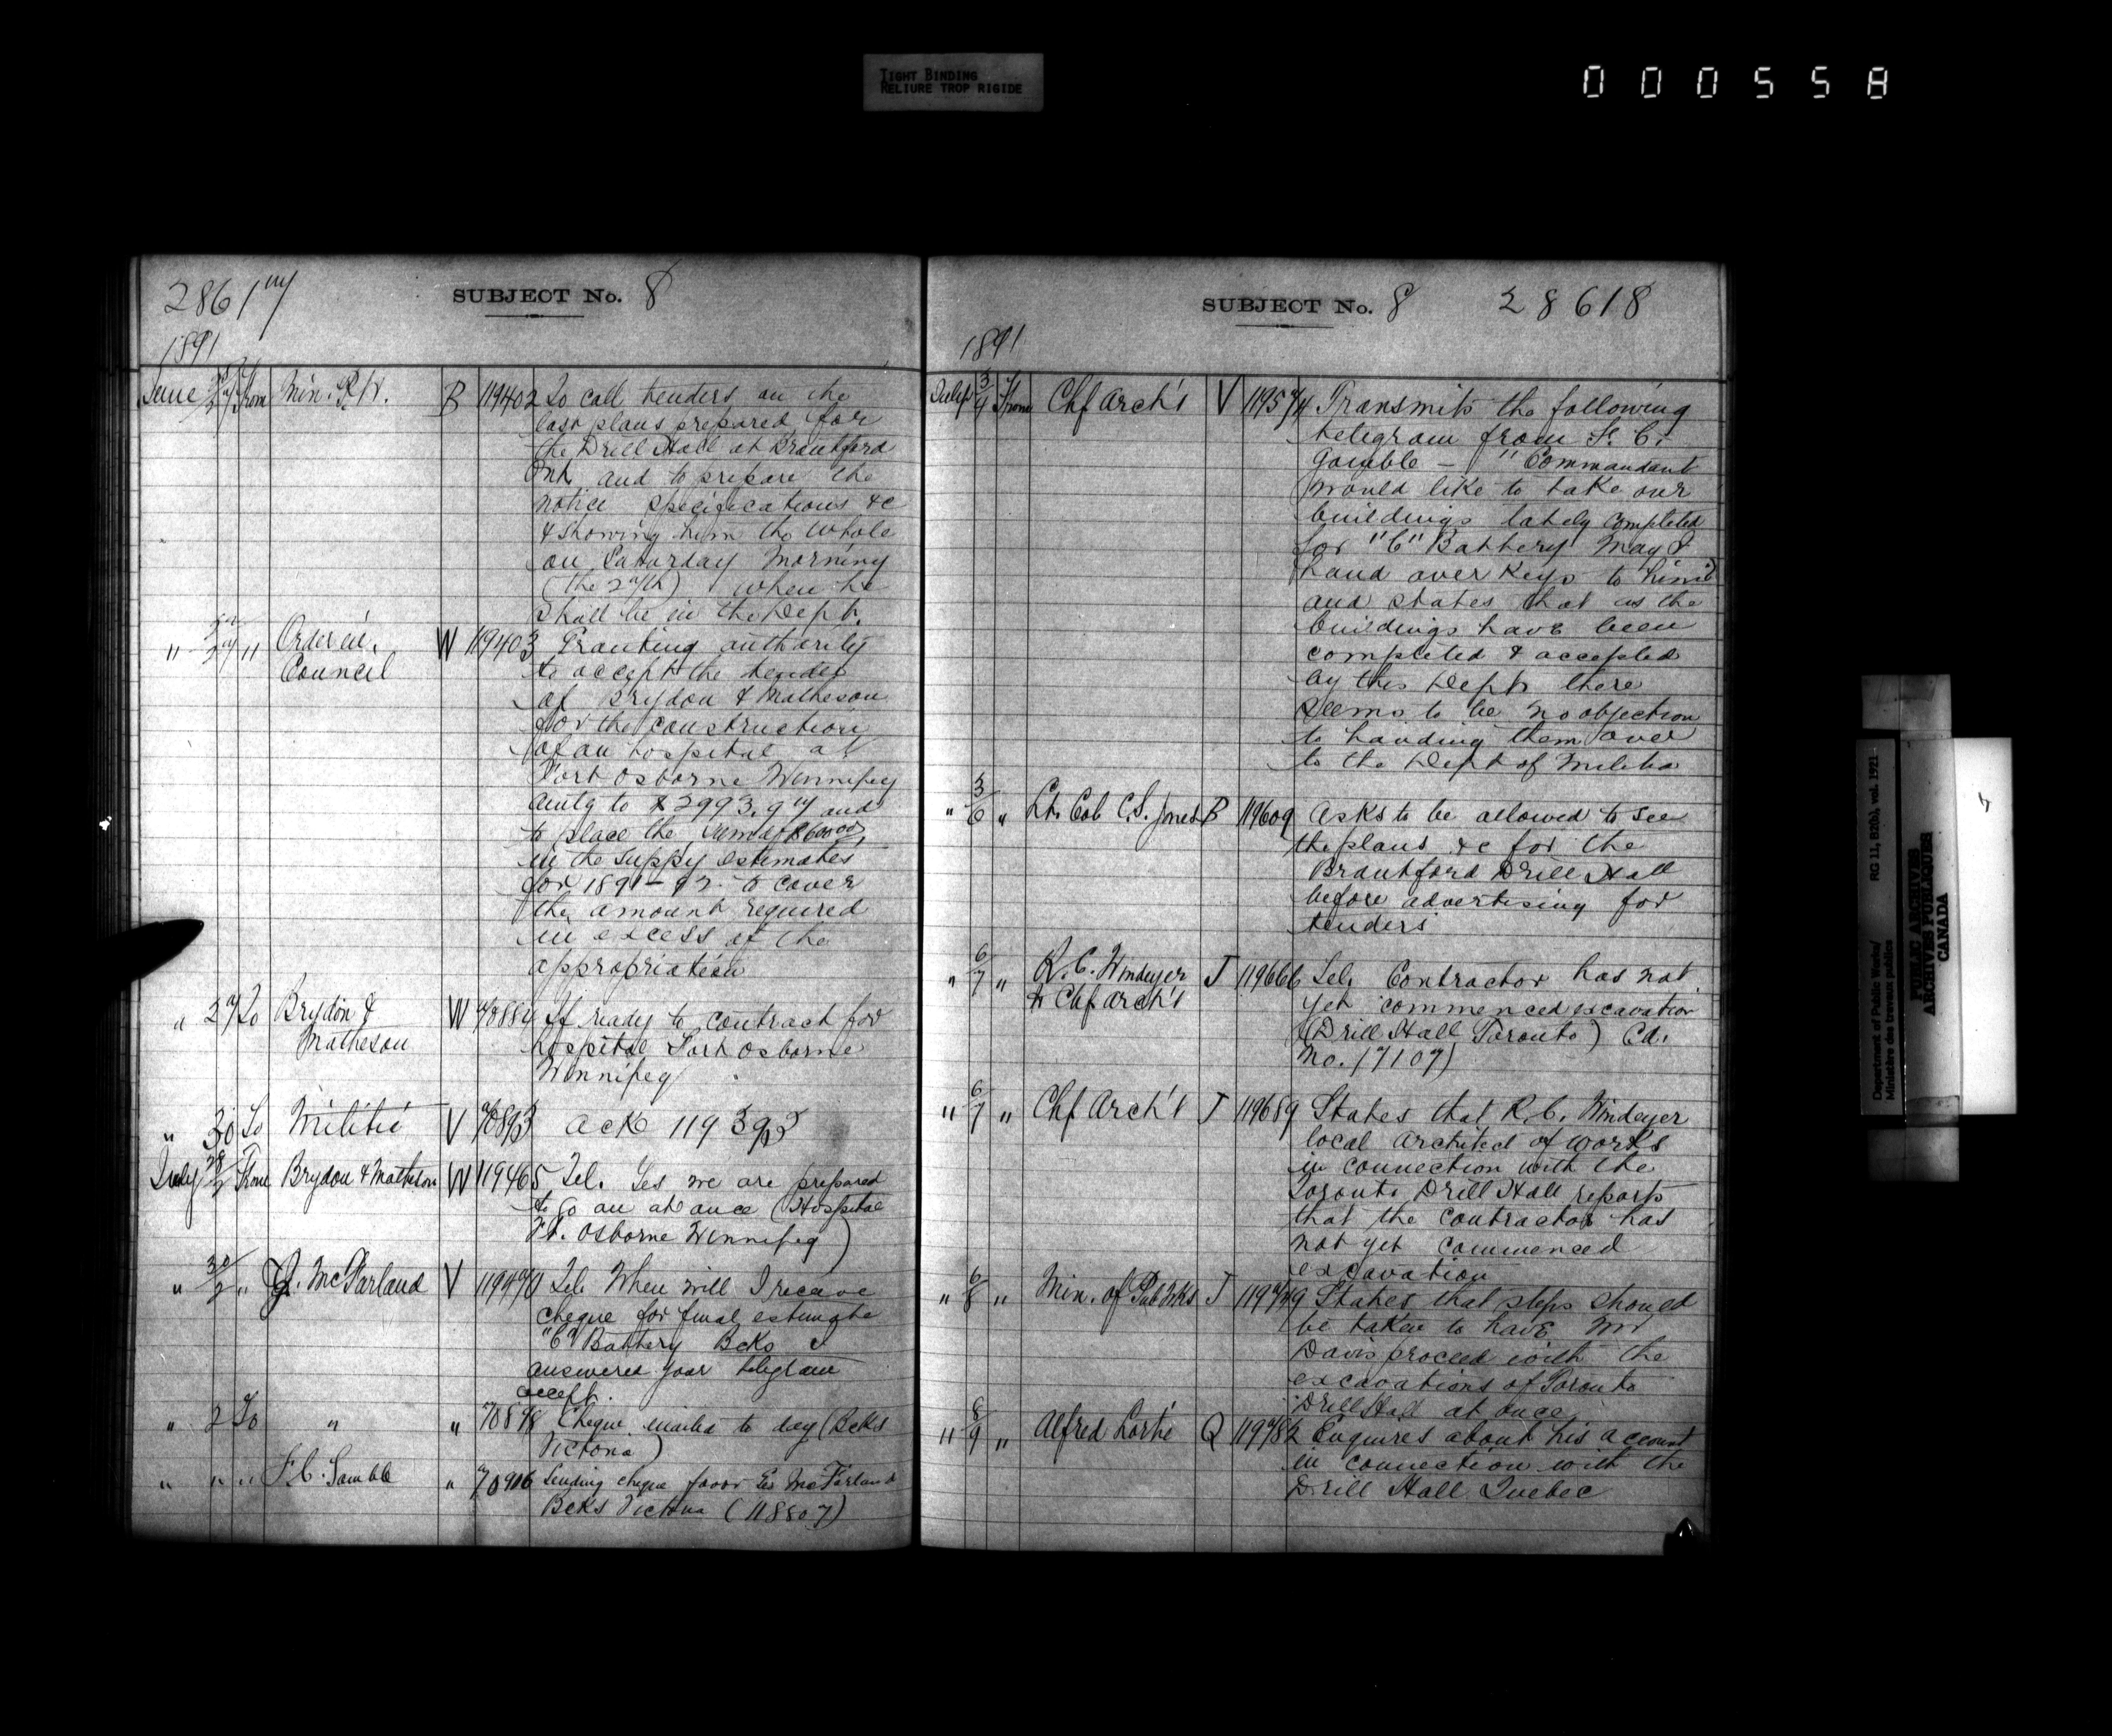 TIGHT BINDING
RELIURE TROP RIGIDE
000558
28617
SUBJECT No. 8
1891
June 27 From Min. P.W. B 119402 To call tenders on the
last plans prepared for
the Drill Hall at Brantford
Ont. and to prepare the
notice specifications &c
& showing him the whole
on Saturday Morning
(the 27th) when he
shall be in the Dept.
" 27 " Order in W 119403 Granting authority
Council to accept the tender
of Brydon & Matheson
for the construction
of an hospital at
Fort Osborne Winnipeg
amtg to $2993.97 and
to place the sum of
in the Suppy estimates
for 1891-92 to cover
the amount required
in excess of the
appropriation
" 27 To Brydon & W 70884 If ready to contract for
Matheson hospital Fort Osborne
Winnipeg
" 30 To Militia V 70893 Ack 119393
July 28/2 From Brydon & Matheson W 119465 Tel. Yes we are prepared
to go on at once (Hospital
Ft. Osborne Winnipeg)
" 30/2 " G. McFarland V 119470 Tel. When will I receive
cheque for final estimate
"C" Battery Bcks I
answered your telegram
accept.
" 2 To " " 70898 Cheque mailed to day (Bcks
Victoria)
" " " F.C. Gamble " 70906 Sending cheque favor McFarland
Bcks Victoria (118807)
SUBJECT No. 8 28618
1891
July 3/4 From Chf Arch't V 119574 Transmits the following
telegram from F. C.
Gamble — "Commandant
would like to take our
buildings lately completed
for "C" Battery May I
hand over keys to him"
and states that as the
buildings have been
completed & accepted
by this Dept. there
seems to be no objection
to handing them over
to the Dept of Militia
" 3/6 " Lt. Col. C.S. Jones B 119609 Asks to be allowed to see
the plans &c for the
Brantford Drill Hall
before advertising for
tenders
" 6/7 " R. C. Windeyer J 119666 Tel. Contractor has not
to Chf Arch't yet commenced excavation
(Drill Hall Toronto) Cd.
No. 17107)
" 6/7 " Chf Arch't J 119689 States that R. C. Windeyer
local architect of works
in connection with the
Toronto Drill Hall reports
that the contractor has
not yet commenced
excavation
" 6/8 " Min. of Pub Wks J 119749 States that steps should
be taken to have Mr
Davis proceed with the
excavations of Toronto
Drill Hall at once
" 8/9 " Alfred Lortie Q 119782 Enquires about his account
in connection with the
Drill Hall Quebec
Department of Public Works/
Ministère des travaux publics
RG 11, B2(b), vol. 1921
PUBLIC ARCHIVES
ARCHIVES PUBLIQUES
CANADA